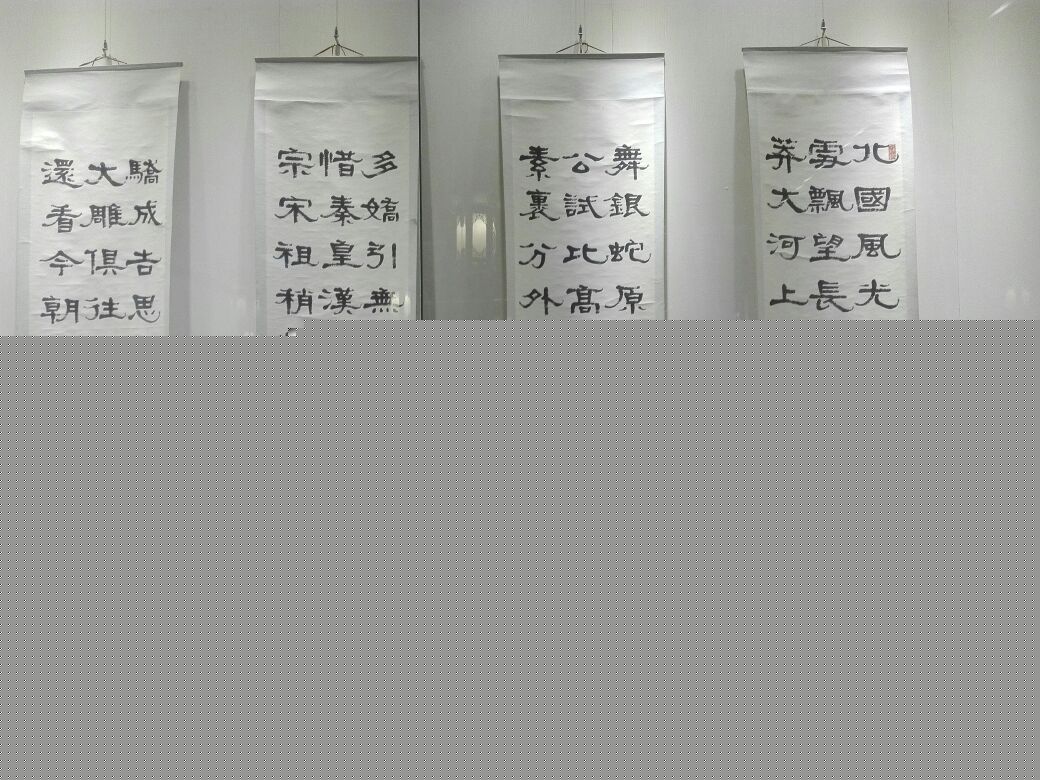 北國風光
雾飄望長
莽大河上
舞銀蛇原
公試比高
素裹分外
多嬌引無
惜秦皇漢
宗宋祖稍
驕成吉思
大雕俱往
還看今朝